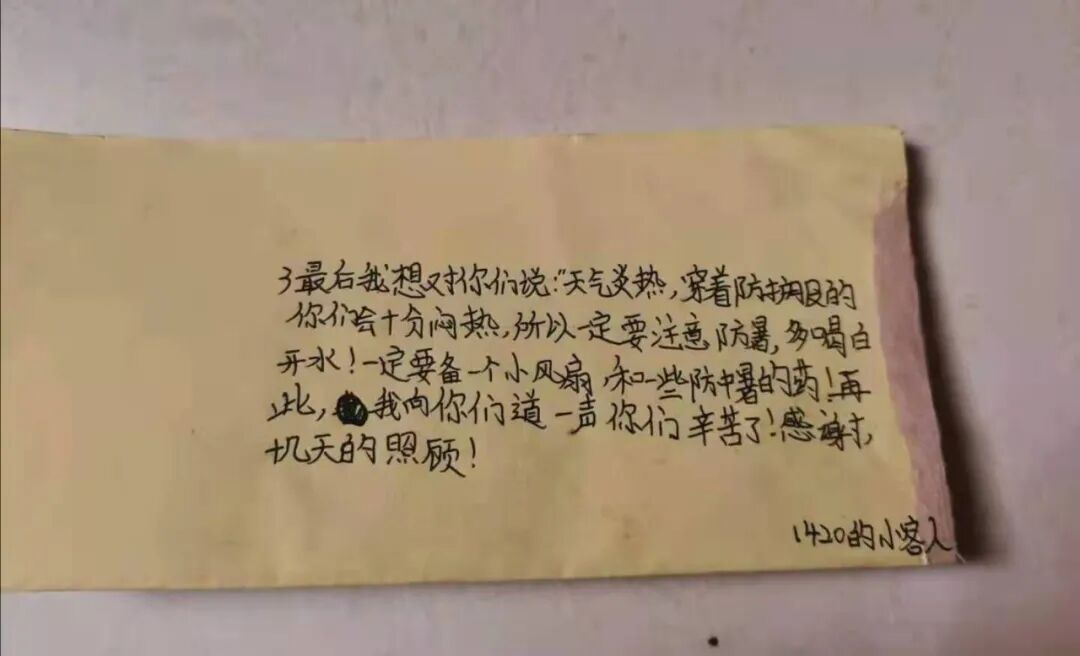 3最后我想对你们说:"天气炎热,穿着防护服的
你们会十分闷热,所以一定要注意防暑,多喝白
开水!一定要备一个小风扇,和一些防中暑的药!再
此,我向你们道一声你们辛苦了!感谢
十几天的照顾!
1420的小客人